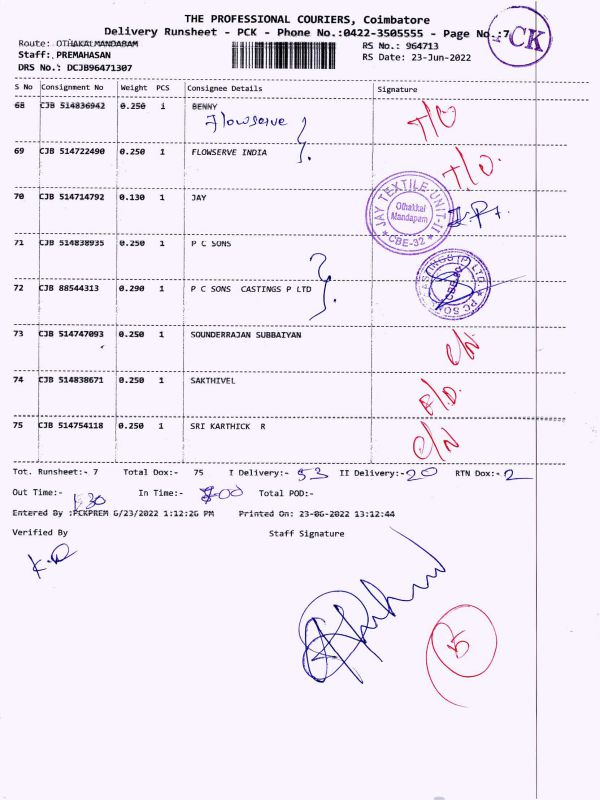 THE PROFESSIONAL COURIERS, Coimbatore
Delivery Runsheet - PCK - Phone No.:0422-3505555 - Page No.:7
CK
Route: OTHAKALMANDABAM
RS No.: 964713
Staff: PREMAHASAN
RS Date: 23-Jun-2022
DRS No.: DCJB96471307
S No Consignment No Weight PCS Consignee Details Signature
68 CJB 514836942 0.250 1 BENNY
Flowserve
T/O
69 CJB 514722490 0.250 1 FLOWSERVE INDIA
T/O.
70 CJB 514714792 0.130 1 JAY
JAY TEXTILE UNIT-II
Othakkal
Mandapam
CBE-32
71 CJB 514838935 0.250 1 P C SONS
72 CJB 88544313 0.290 1 P C SONS CASTINGS P LTD
73 CJB 514747093 0.250 1 SOUNDERRAJAN SUBBAIYAN
C/N
74 CJB 514838671 0.250 1 SAKTHIVEL
75 CJB 514754118 0.250 1 SRI KARTHICK R
C/N
Tot. Runsheet:- 7 Total Dox:- 75 I Delivery:- 53 II Delivery:- 20 RTN Dox:- 2
Out Time:- 1:30 In Time:- Total POD:-
Entered By :PCKPREM 6/23/2022 1:12:26 PM Printed On: 23-06-2022 13:12:44
Verified By Staff Signature